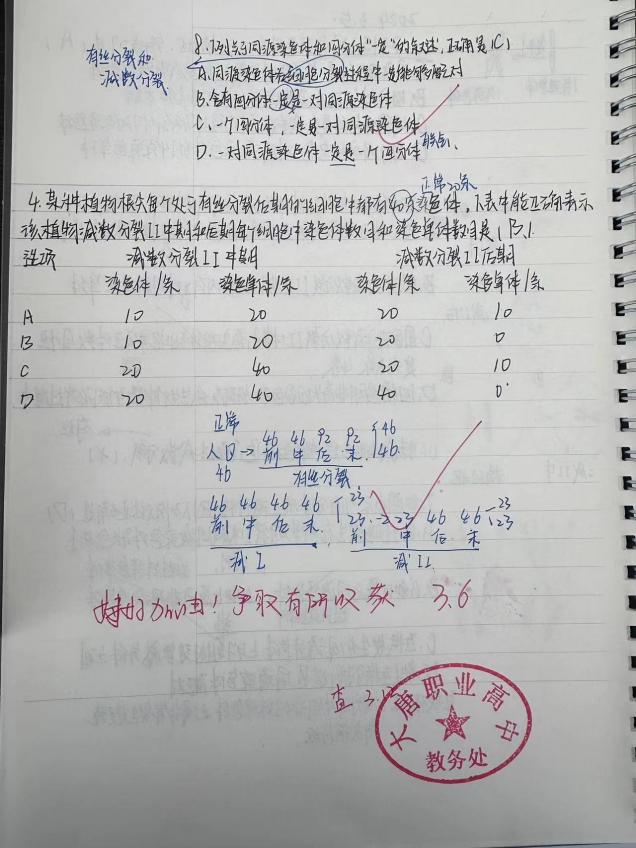 8.下列关于同源染色体和四分体"一定"的叙述,正确是(C)
有丝分裂和
减数分裂.
A.同源染色体在细胞分裂过程中一定能够配对
B.含有四分体一定是一对同源染色体
C.一个四分体,一定是一对同源染色体
D.一对同源染色体一定是一个四分体
正常20条
4.某种植物根尖每个处于有丝分裂后期的细胞中都有40条染色体,下表中能正确表示
该植物减数分裂II中期和后期每个细胞中染色体数目和染色单体数目是(B.)
选项 减数分裂II中期 减数分裂II后期
染色体/条 染色单体/条 染色体/条 染色单体/条
A 10 20 20 10
B 10 20 20 0
C 20 40 20 10
D 20 40 40 0
正常
人口→ 46 46 92 92 46
46 前 中 后 末 46
有丝分裂.
46 46 46 46 23
前 中 后 末 23
减I
23 46 46 23
前 中 后 末 23
减II
好好加油!争取有所收获 3.6
查 3.
大唐职业高中
教务处